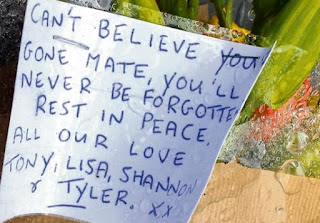 CAN'T BELIEVE you
GONE MATE, YOU'LL
NEVER BE FORGOTTE
REST IN PEACE.
ALL OUR LOVE
TONY, LISA, SHANNON
& TYLER. xx